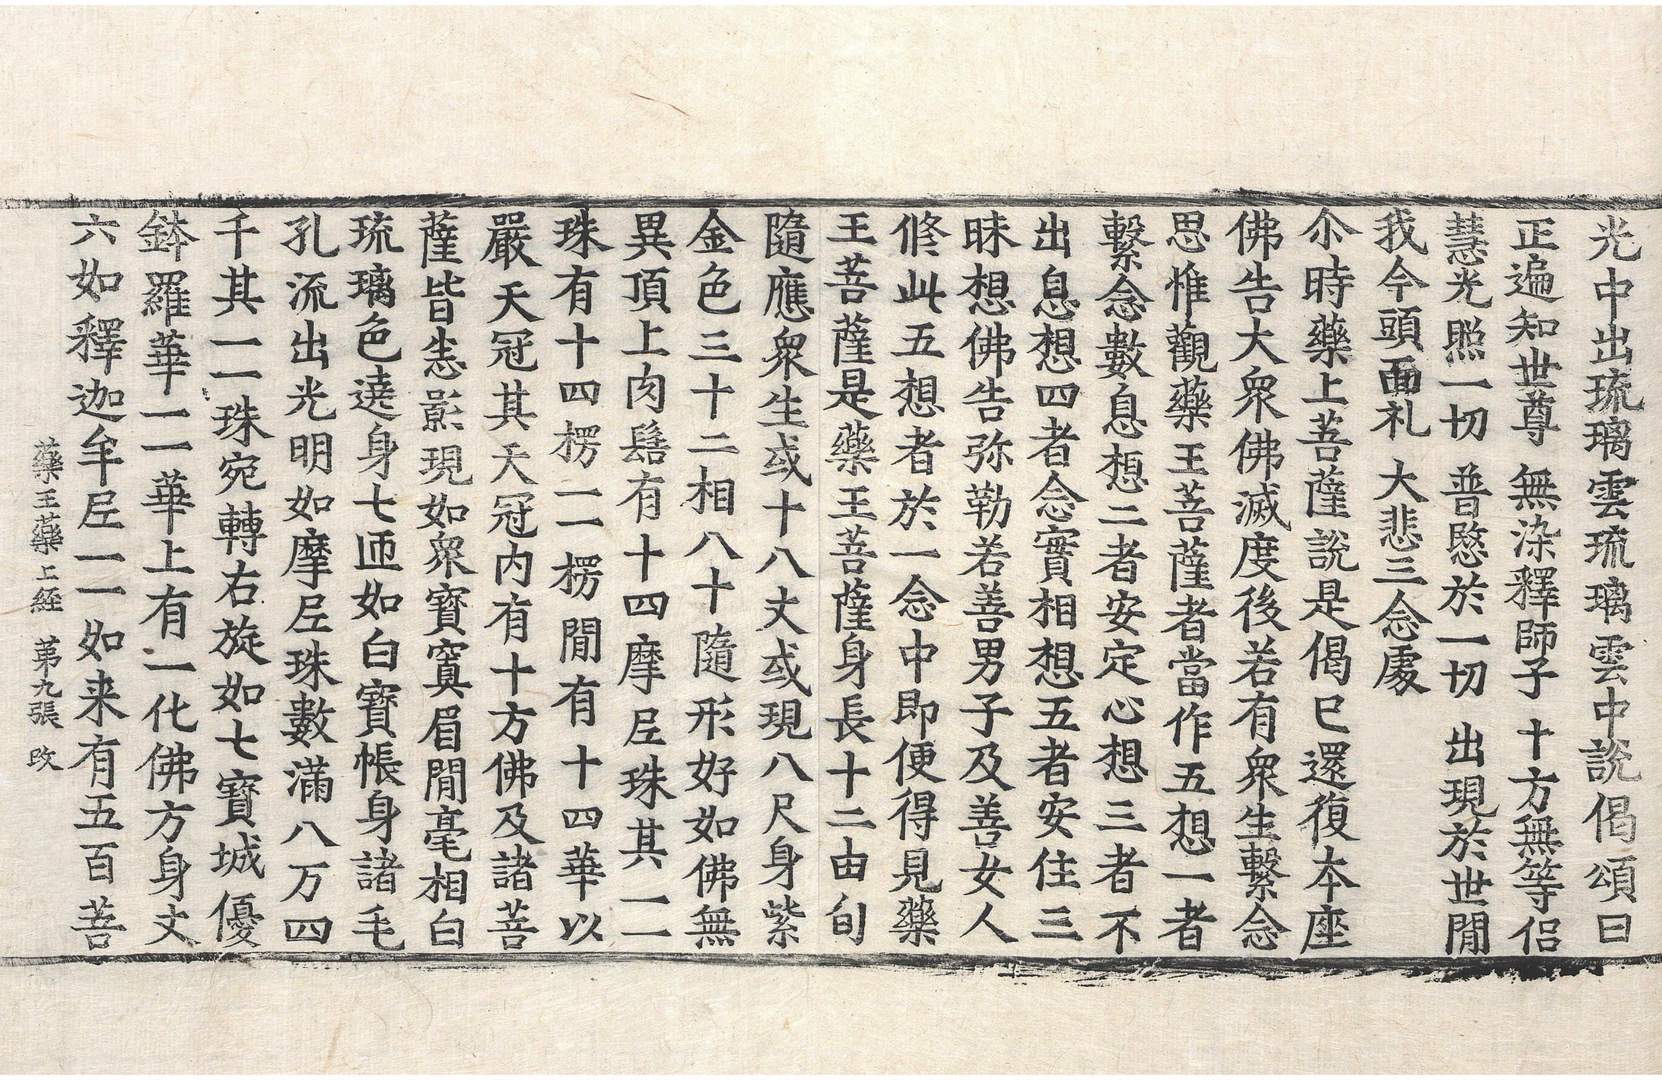 光中出琉璃雲琉璃雲中說偈頌曰
正遍知世尊 無染釋師子 十方無等侶
慧光照一切 普愍於一切 出現於世間
我今頭面礼 大悲三念處
尒時藥上菩薩說是偈已還復本座
佛告大衆佛滅度後若有衆生繫念
思惟觀藥王菩薩者當作五想一者
繫念數息想二者安定心想三者不
出息想四者念實相想五者安住三
昧想佛告弥勒若善男子及善女人
修此五想者於一念中即便得見藥
王菩薩是藥王菩薩身長十二由旬
隨應衆生或十八丈或現八尺身紫
金色三十二相八十隨形好如佛無
異頂上肉髻有十四摩尼珠其一一
珠有十四楞一一楞閒有十四華以
嚴天冠其天冠内有十方佛及諸菩
薩皆悉影現如衆寶窴眉閒毫相白
琉璃色遶身七匝如白寶帳身諸毛
孔流出光明如摩尼珠數滿八万四
千其一一珠宛轉右旋如七寶城優
鉢羅華一一華上有一化佛方身丈
六如釋迦牟尼一一如来有五百菩
藥王藥上経 第九張 改